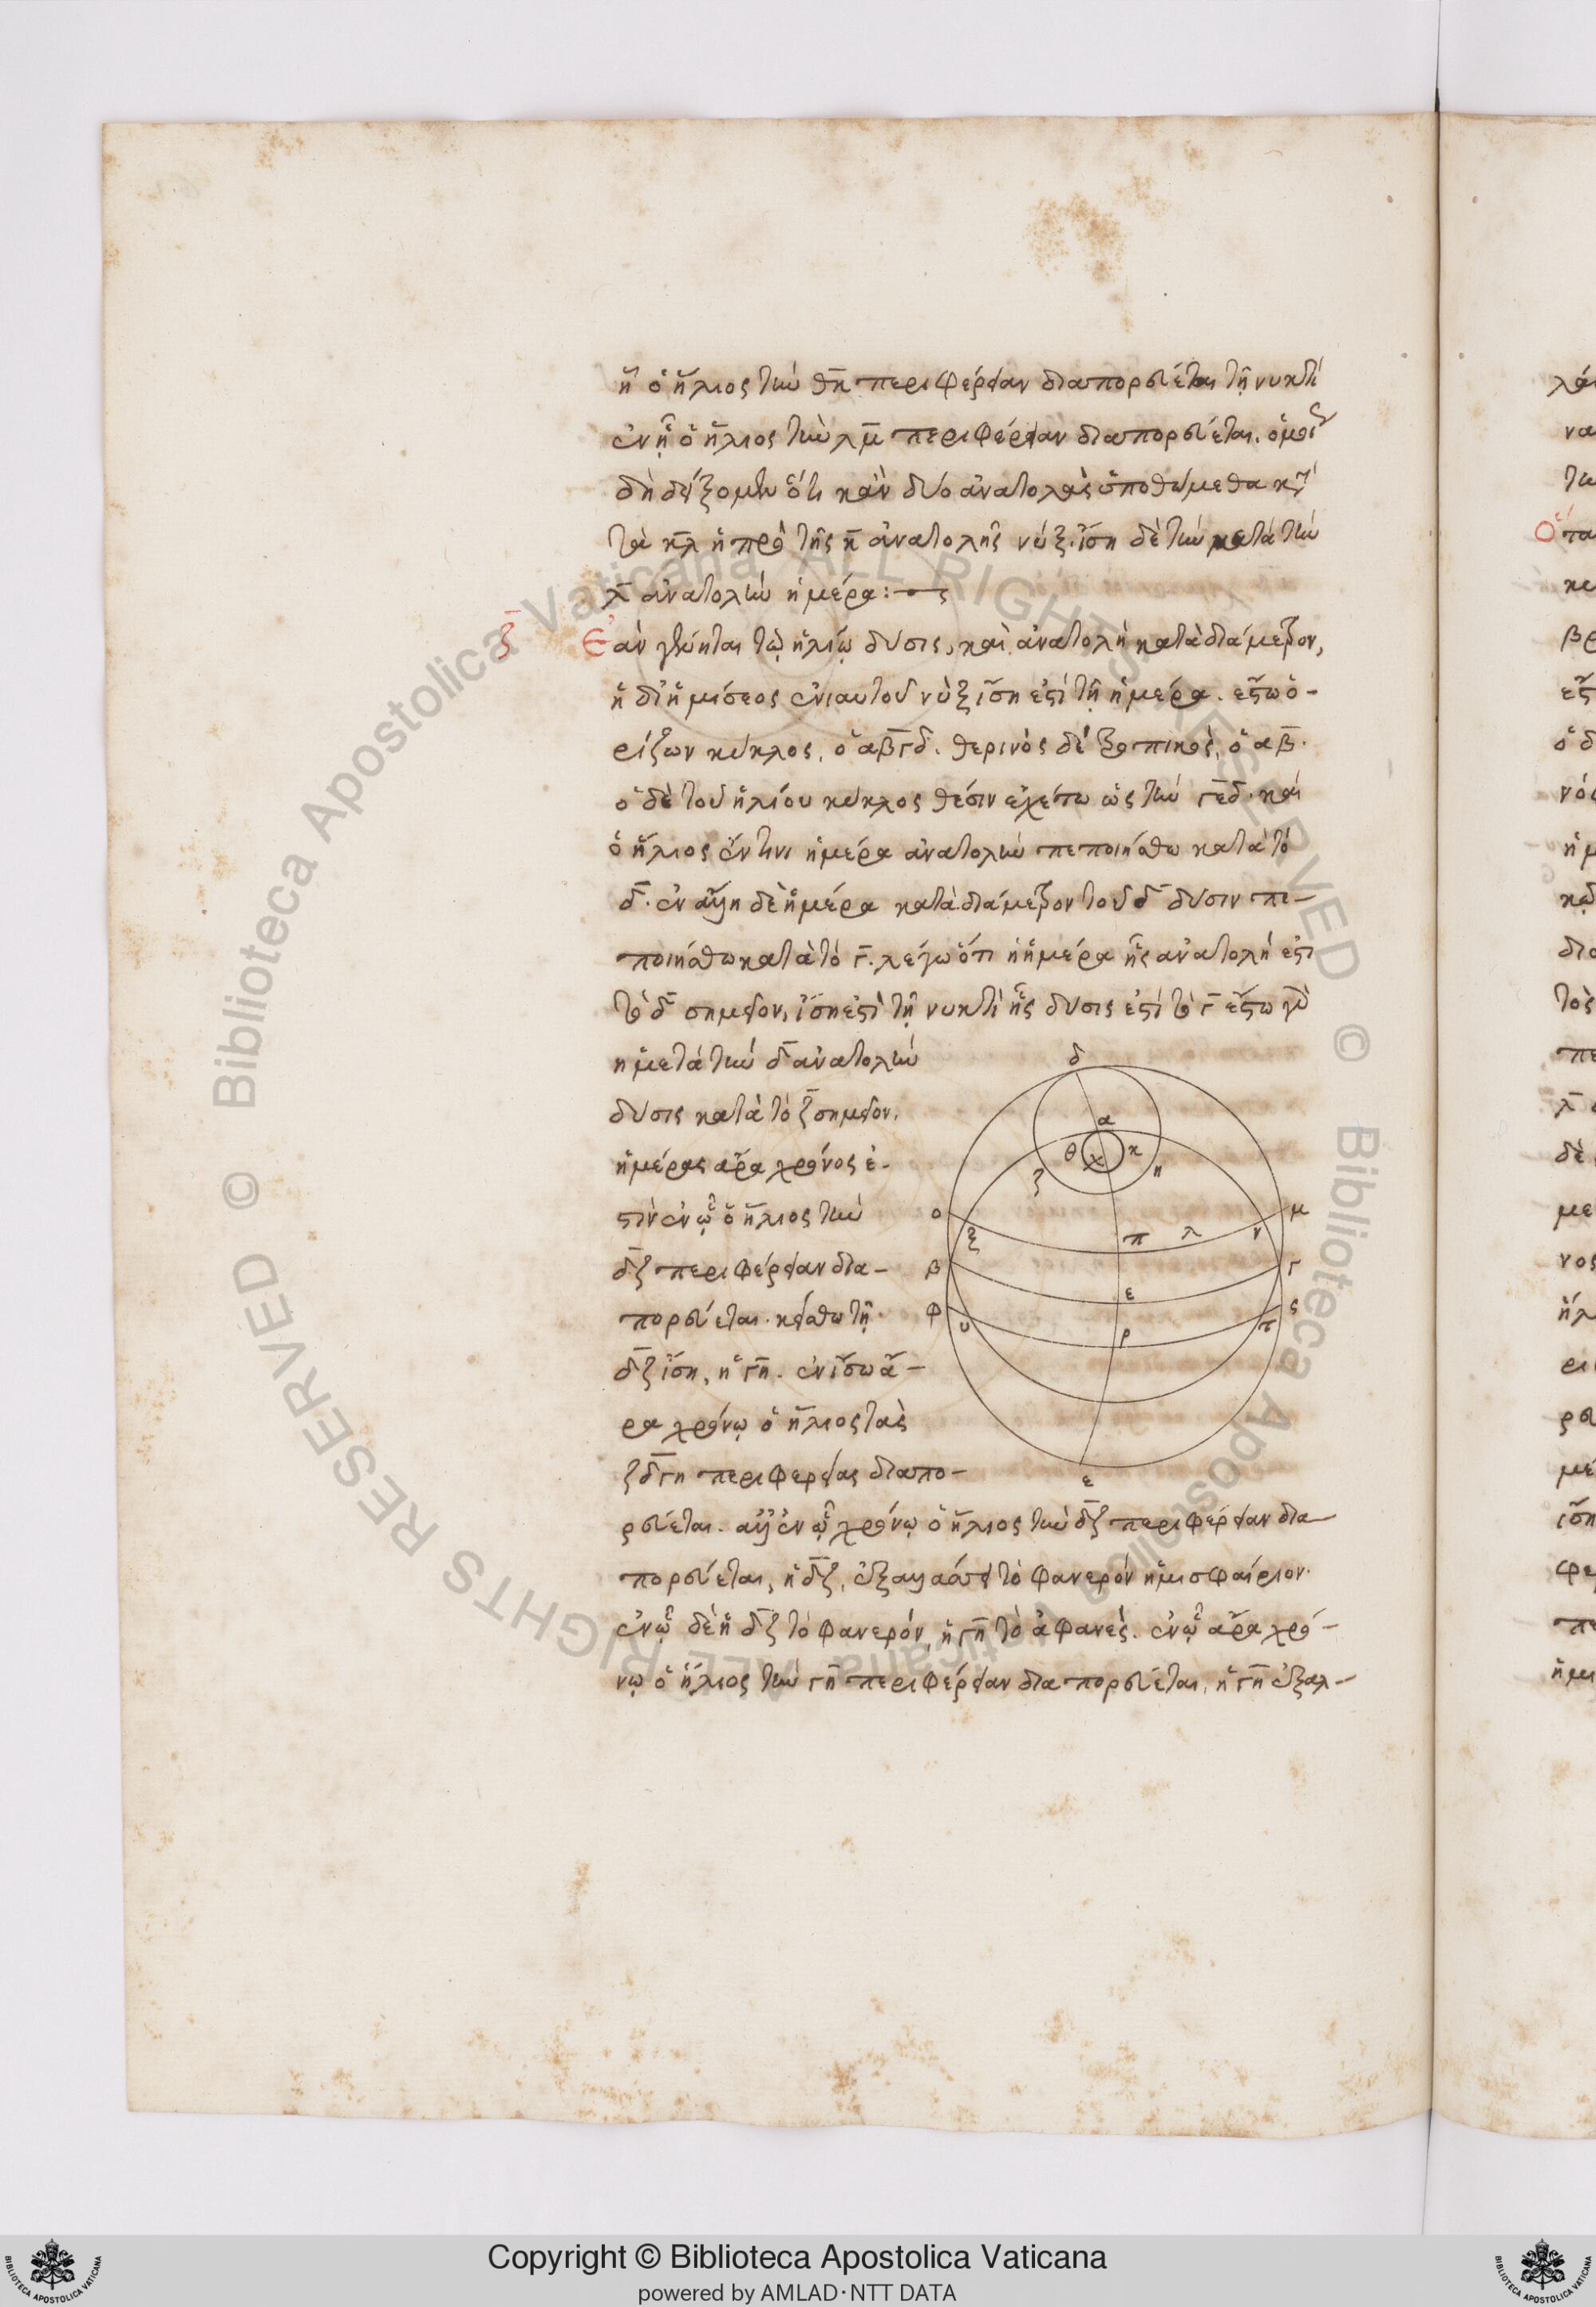 ἢ ὁ ἥλιος τὴν θκ περιφέρειαν διαπορεύεται τῇ νυκτὶ
ἐν ᾗ ὁ ἥλιος τὴν λμ περιφέρειαν διαπορεύεται. ὁμοίως
δὴ δείξομεν ὅτι κἂν δύο ἀνατολὰς ὑποθώμεθα κατὰ
τὰ κλ ἡ πρὸ τῆς κ ἀνατολῆς νύξ. ἴση δὲ τὴν μετὰ τὴν
λ ἀνατολὴν ἡμέρα:
Ἐὰν γένηται τῷ ἡλίῳ δύσις, καὶ ἀνατολὴ κατὰ διάμετρον,
ἡ δι' ἡμίσεος ἐνιαυτοῦ νὺξ ἴση ἐστὶ τῇ ἡμέρα. ἔστω ὁ-
ρίζων κύκλος, ὁ αβγδ. θερινὸς δὲ τροπικὸς, ὁ αβ.
ὁ δὲ τοῦ ἡλίου κύκλος θέσιν ἐχέτω ὡς τὴν γεδ. καὶ
ὁ ἥλιος ἔν τινι ἡμέρα ἀνατολὴν πεποιήσθω κατὰ τὸ
δ. ἐν αὐτῇ δὲ ἡμέρα κατὰ διάμετρον τοῦ δ δύσιν πε-
ποιήσθω κατὰ τὸ γ. λέγω ὅτι ἡ ἡμέρα ἧς ἀνατολή ἐστι
τὸ δ σημεῖον, ἴση ἐστὶ τῇ νυκτὶ ἧς δύσις ἐστὶ τὸ γ ἔστω γὰρ
ἡ μετὰ τὴν δ ἀνατολὴν
δύσις κατὰ τὸ ζ σημεῖον.
ἡμέρας ἄρα χρόνος ἐ-
στὶν ἐν ᾧ ὁ ἥλιος τὴν
δζ περιφέρειαν δια-
πορεύεται. κείσθω τῇ
δζ ἴση, ἡ γη. ἐν ἴσω ἄ-
ρα χρόνῳ ὁ ἥλιος τὰς
ζδ γη περιφερείας διαπο-
ρεύεται. ἀλλ' ἐν ᾧ χρόνῳ ὁ ἥλιος τὴν δζ περιφέρειαν δια
πορεύεται, ἡ δζ, ἐξαλλάσσει τὸ φανερὸν ἡμισφαίριον.
ἐν ᾧ δὲ ἡ δζ τὸ φανερόν, ἡ γη τὸ ἀφανές. ἐν ᾧ ἄρα χρό-
νῳ ὁ ἥλιος τὴν γη περιφέρειαν διαπορεύεται, ἡ γη ἐξαλ-
δ
α
θ κ
χ
ζ η
ο μ
ξ π λ ν
β γ
ε
φ ς
υ ρ τ
ε
Copyright © Biblioteca Apostolica Vaticana
powered by AMLAD·NTT DATA